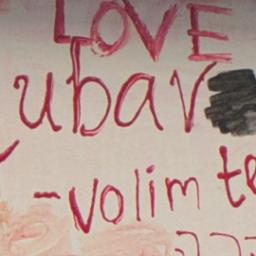 LOVE
ubav
-volim te